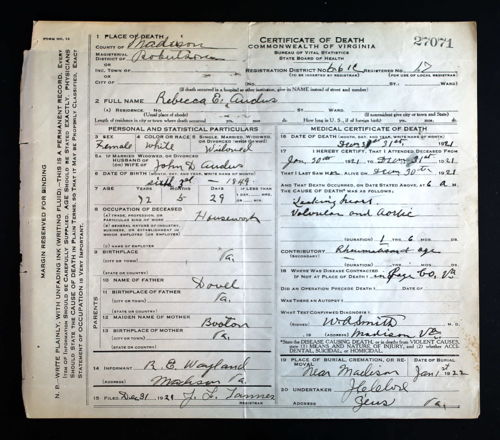 FORM NO. 12
1 PLACE OF DEATH
COUNTY OF Madison
MAGISTERIAL DISTRICT OF Robertson
OR
INC. TOWN OF
OR
CITY OF
CERTIFICATE OF DEATH
COMMONWEALTH OF VIRGINIA
BUREAU OF VITAL STATISTICS
STATE BOARD OF HEALTH
27071
REGISTRATION DISTRICT NO. REGISTERED NO. 17
(TO BE INSERTED BY REGISTRAR) (FOR USE OF LOCAL REGISTRAR)
ST. WARD
(If death occurred in a hospital or other institution, give its NAME instead of street and number)
2 FULL NAME Rebecca E. Andus
(A) RESIDENCE. No. ST. WARD.
(Usual place of abode) (If nonresident give city or town and State)
Length of residence in city or town where death occurred yrs. mos. ds. How long in U. S., if of foreign birth? yrs. mos. ds.
PERSONAL AND STATISTICAL PARTICULARS
3 SEX
Female
4 COLOR OR RACE
White
5 SINGLE, MARRIED, WIDOWED, OR DIVORCED (WRITE THE WORD)
Widowed
5A IF MARRIED, WIDOWED, OR DIVORCED
HUSBAND OF
(OR) WIFE OF John D. Andus
6 DATE OF BIRTH (MONTH, DAY, AND YEAR, WRITE NAME OF MONTH)
1849
7 AGE YEARS MONTHS DAYS IF LESS THAN 1 DAY,
72 5 29
8 OCCUPATION OF DECEASED
(A) TRADE, PROFESSION, OR PARTICULAR KIND OF WORK Housework
(B) GENERAL NATURE OF INDUSTRY, BUSINESS, OR ESTABLISHMENT IN WHICH EMPLOYED (OR EMPLOYER)
(C) NAME OF EMPLOYER
9 BIRTHPLACE
(CITY OR TOWN) Va.
(STATE OR COUNTRY)
PARENTS
10 NAME OF FATHER Dovel
11 BIRTHPLACE OF FATHER
(CITY OR TOWN) Va.
(STATE OR COUNTRY)
12 MAIDEN NAME OF MOTHER
Booton
13 BIRTHPLACE OF MOTHER
(CITY OR TOWN) Va.
(STATE OR COUNTRY)
14 INFORMANT R. E. Wayland
(ADDRESS) Madison Va.
15 FILED Dec 31 192 J. L. Tanner
REGISTRAR
MEDICAL CERTIFICATE OF DEATH
16 DATE OF DEATH (MONTH, DAY, AND YEAR, WRITE NAME OF MONTH)
31st 1921
17
I HEREBY CERTIFY, THAT I ATTENDED DECEASED FROM
Jan 30th 1921, TO 31st 1921
THAT I LAST SAW HER ALIVE ON 30th 1921
AND THAT DEATH OCCURRED, ON DATE STATED ABOVE, AT 6 A M.
THE CAUSE OF DEATH* WAS AS FOLLOWS:
Leaking heart
Valvular and Aortic
(DURATION) 1 YRS. 6 MOS. DS.
CONTRIBUTORY Rheumatism & age
(SECONDARY)
(DURATION) YRS. MOS. DS.
18 WHERE WAS DISEASE CONTRACTED
IF NOT AT PLACE OF DEATH? in Page Co, Va
DID AN OPERATION PRECEDE DEATH? DATE OF
WAS THERE AN AUTOPSY?
WHAT TEST CONFIRMED DIAGNOSIS?
(SIGNED) W. A. Smith M. D.
, 19 (ADDRESS) Madison Va
*State the DISEASE CAUSING DEATH, or in deaths from VIOLENT CAUSES, state (1) MEANS AND NATURE OF INJURY, and (2) whether ACCIDENTAL, SUICIDAL, or HOMICIDAL.
19 PLACE OF BURIAL, CREMATION, OR REMOVAL DATE OF BURIAL
Near Madison Jan 1st 1922
20 UNDERTAKER
ADDRESS Zeus Va.
MARGIN RESERVED FOR BINDING